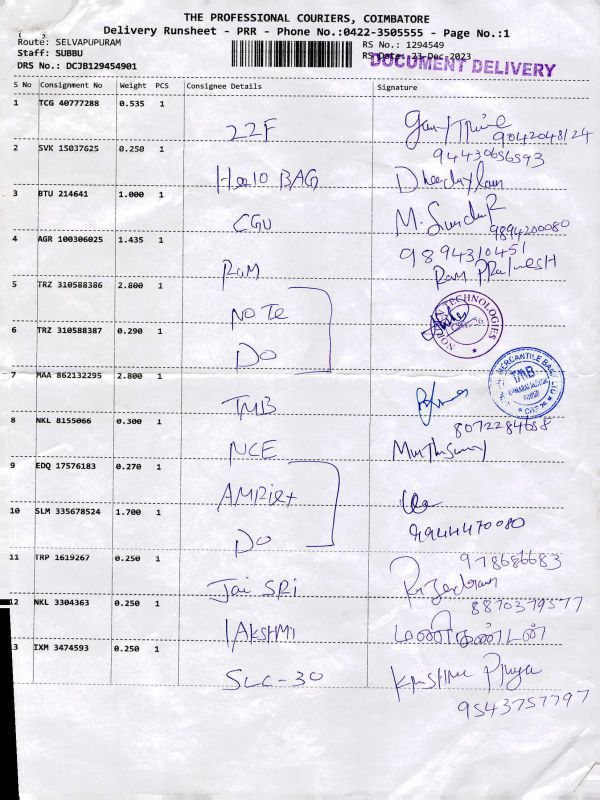 THE PROFESSIONAL COURIERS, COIMBATORE
Delivery Runsheet - PRR - Phone No.:0422-3505555 - Page No.:1
Route: SELVAPUPURAM
Staff: SUBBU
DRS No.: DCJB129454901
RS No.: 1294549
RS Date: 23-Dec-2023
DOCUMENT DELIVERY
S No Consignment No Weight PCS Consignee Details Signature
1 TCG 40777288 0.535 1
22F
9042048124
2 SVK 15037625 0.250 1
94430656593
Hello BAG
3 BTU 214641 1.000 1
CGU M. Sundar
9894200080
4 AGR 100306025 1.435 1
9894310451
RAM
5 TRZ 310588386 2.800 1
NOTe
NOR TECHNOLOGIES
6 TRZ 310588387 0.290 1
DO
MERCANTILE BANK LTD
TMB
7 MAA 862132295 2.800 1
TMB
8072284658
8 NKL 8155066 0.300 1
NCE
9 EDQ 17576183 0.270 1
10 SLM 335678524 1.700 1
9944470080
DO
11 TRP 1619267 0.250 1
978686683
Jai SRI
8870379577
12 NKL 3304363 0.250 1
LAKSHMI மணிகண்டன்
3 IXM 3474593 0.250 1
SLC-30 Krishna Priya
9543757797